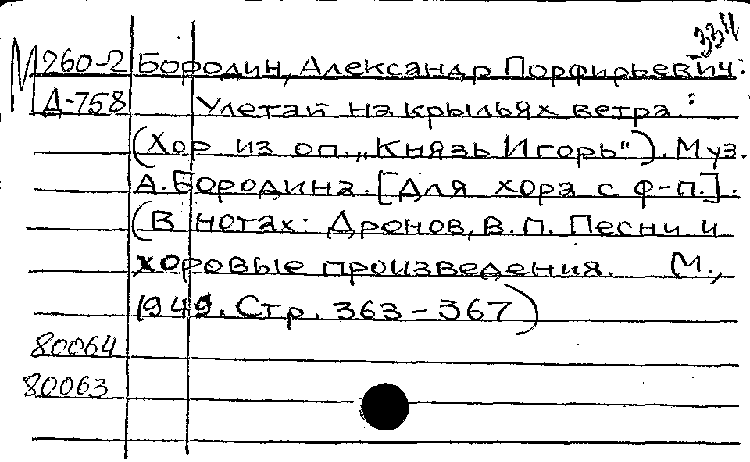 334
М 260-2 Бородин, Александр Порфирьевич:
Д-758 Улетай на крыльях ветра:
(Хор из оп. „Князь Игорь"). Муз.
А. Бородина. [Для хора с ф-п.].
(В нотах: Дронов, В. П. Песни и
хоровые произведения. М.,
1949. Стр. 363-367)
80064
80063